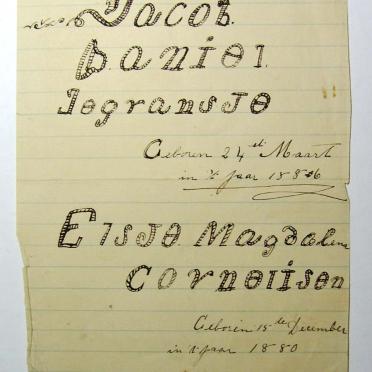 Jacob.
Daniel.
Legransje
Geboren 24st Maart
in 't jaar 1886
Elsje Magdalena
Cornelisen
Geboren 15de December
in 't jaar 1880